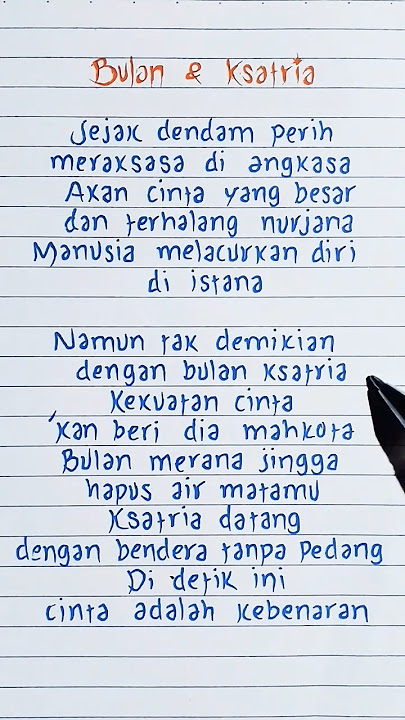 Bulan & Ksatria
Sejak dendam perih
meraksasa di angkasa
Akan cinta yang besar
dan terhalang nurjana
Manusia melacurkan diri
di istana
Namun tak demikian
dengan bulan ksatria
Kekuatan cinta
'kan beri dia mahkota
Bulan merana jingga
hapus air matamu
Ksatria datang
dengan bendera tanpa pedang
Di detik ini
cinta adalah kebenaran